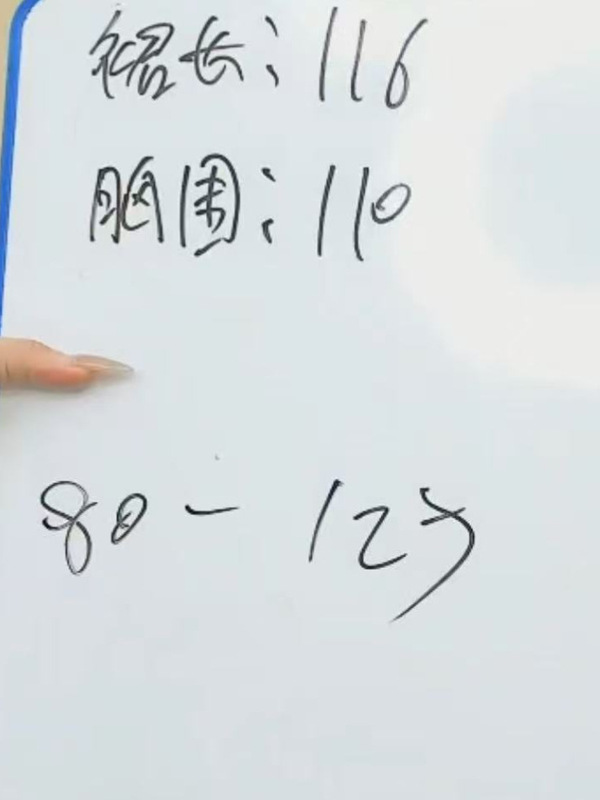 裙长：116
胸围：110
80－125